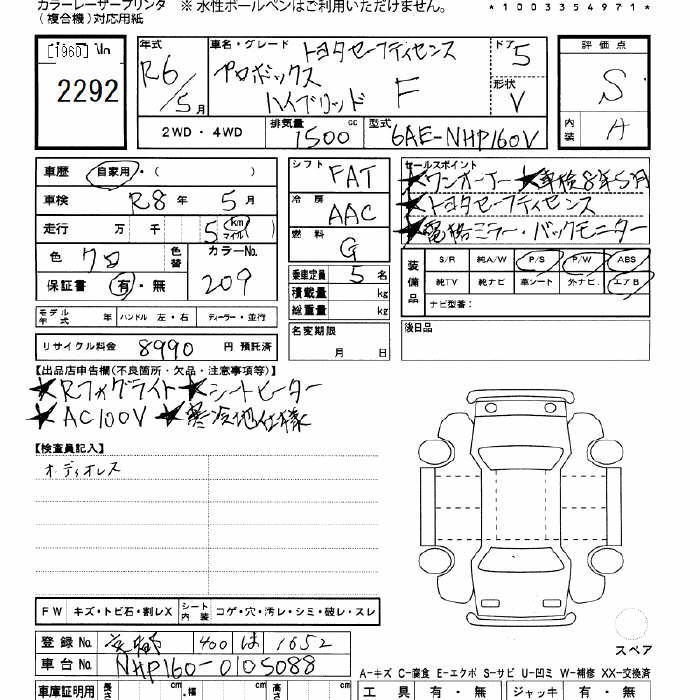 カラーレーザープリンタ ※ 水性ボールペンはご利用いただけません。
(複合機)対応用紙
*1003354971*
[1960]
2292
年式 R6/5月
車名・グレード トヨタセーフティセンス
プロボックス
ハイブリッド F
ドア 5
形状 V
2WD・4WD
排気量 1500 cc
型式 6AE-NHP160V
評価点 S
内装 A
車歴 自家用・( )
車検 R8年 5月
走行 万 千 5 (km マイル)
色 クロ 色替 カラーNo. 209
保証書 有・無
モデル年式 年 ハンドル 左・右 ディーラー・並行
リサイクル料金 8990 円 預託済
シフト FAT
冷房 AAC
燃料 G
乗車定員 5 名
積載量 kg
総重量 kg
名変期限
月 日
セールスポイント
★ワンオーナー ★車検8年5月
★トヨタセーフティセンス
★電格ミラー・バックモニター
装備品 S/R 純A/W P/S P/W ABS
純TV 純ナビ 革シート 外ナビ エアB
ナビ型番:
後日品
【出品店申告欄(不良箇所・欠品・注意事項等)】
★Rフォグライト★シートヒーター
★AC100V ★寒冷地仕様
【検査員記入】
オーディオレス
FW キズ・トビ石・割レX シート内装 コゲ・穴・汚レ・シミ・破レ・スレ
登録No. 京都 400 は 1652
車台No. NHP160-0105088
スペア
A-キズ C-腐食 E-エクボ S-サビ U-凹ミ W-補修 XX-交換済
車庫証明用 長さ cm ・幅 cm 高さ cm
工具 有・無 ジャッキ 有・無